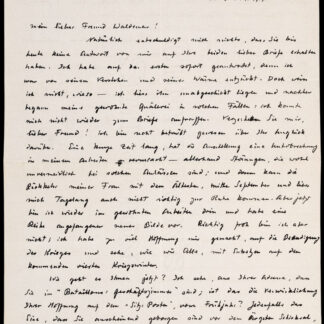 mein lieber Freund Waldemar!
Natürlich entschuldigt mich nichts, dass Sie bis
heute keine Antwort von mir auf Ihre beiden lieben Briefe erhalten
haben. Ich habe auf den ersten sofort geantwortet, denn ich
war von seinem Verstehen und seiner Wärme entzückt. Doch dann
ich nicht, wieso — ich liess ihn unabgeschickt liegen und nachher
begann meine gewohnte Quälerei in solchen Fällen: ich konnte
mich nicht wieder zum Briefe aufraffen. Verzeihen Sie mir,
lieber Freund! Ich bin nicht betrübt genug über Ihr
darüber. Eine kurze Zeit lang, hat die Ausstellung eine Unterbrechung
in meinen Arbeiten verursacht — allerhand Störungen, die wohl
unvermeidlich bei solchen Anlässen sind; und dann kam die
Rückkehr meiner Frau mit den Ältesten, mitte September und hier
mich Tagelang auch nicht richtig zur Ruhe kommen. Aber jetzt
bin ich wieder im gewohnten Arbeiten drin und habe eine
Reihe angefangener neuer Bilder vor. Richtig froh bin ich aber
nicht; ich habe zu viel Hoffnung mir gemacht, auf die Beendigung
des Krieges und sehe, wie Alle, mit Schrecken auf den
kommenden vierten Kriegswinter.
Wie geht es Ihnen jetzt? Ich sehe, aus Ihrer Adresse, dass
Sie im "Bataillons-Geschäftszimmer" sind; ist das die Verwirklichung
Ihrer Hoffnung auf den "Sitz-Posten", vom Frühjahr? Jedenfalls das
Eine, dass Sie anscheinend geborgen sind vor dem Ärgsten Schicksal,